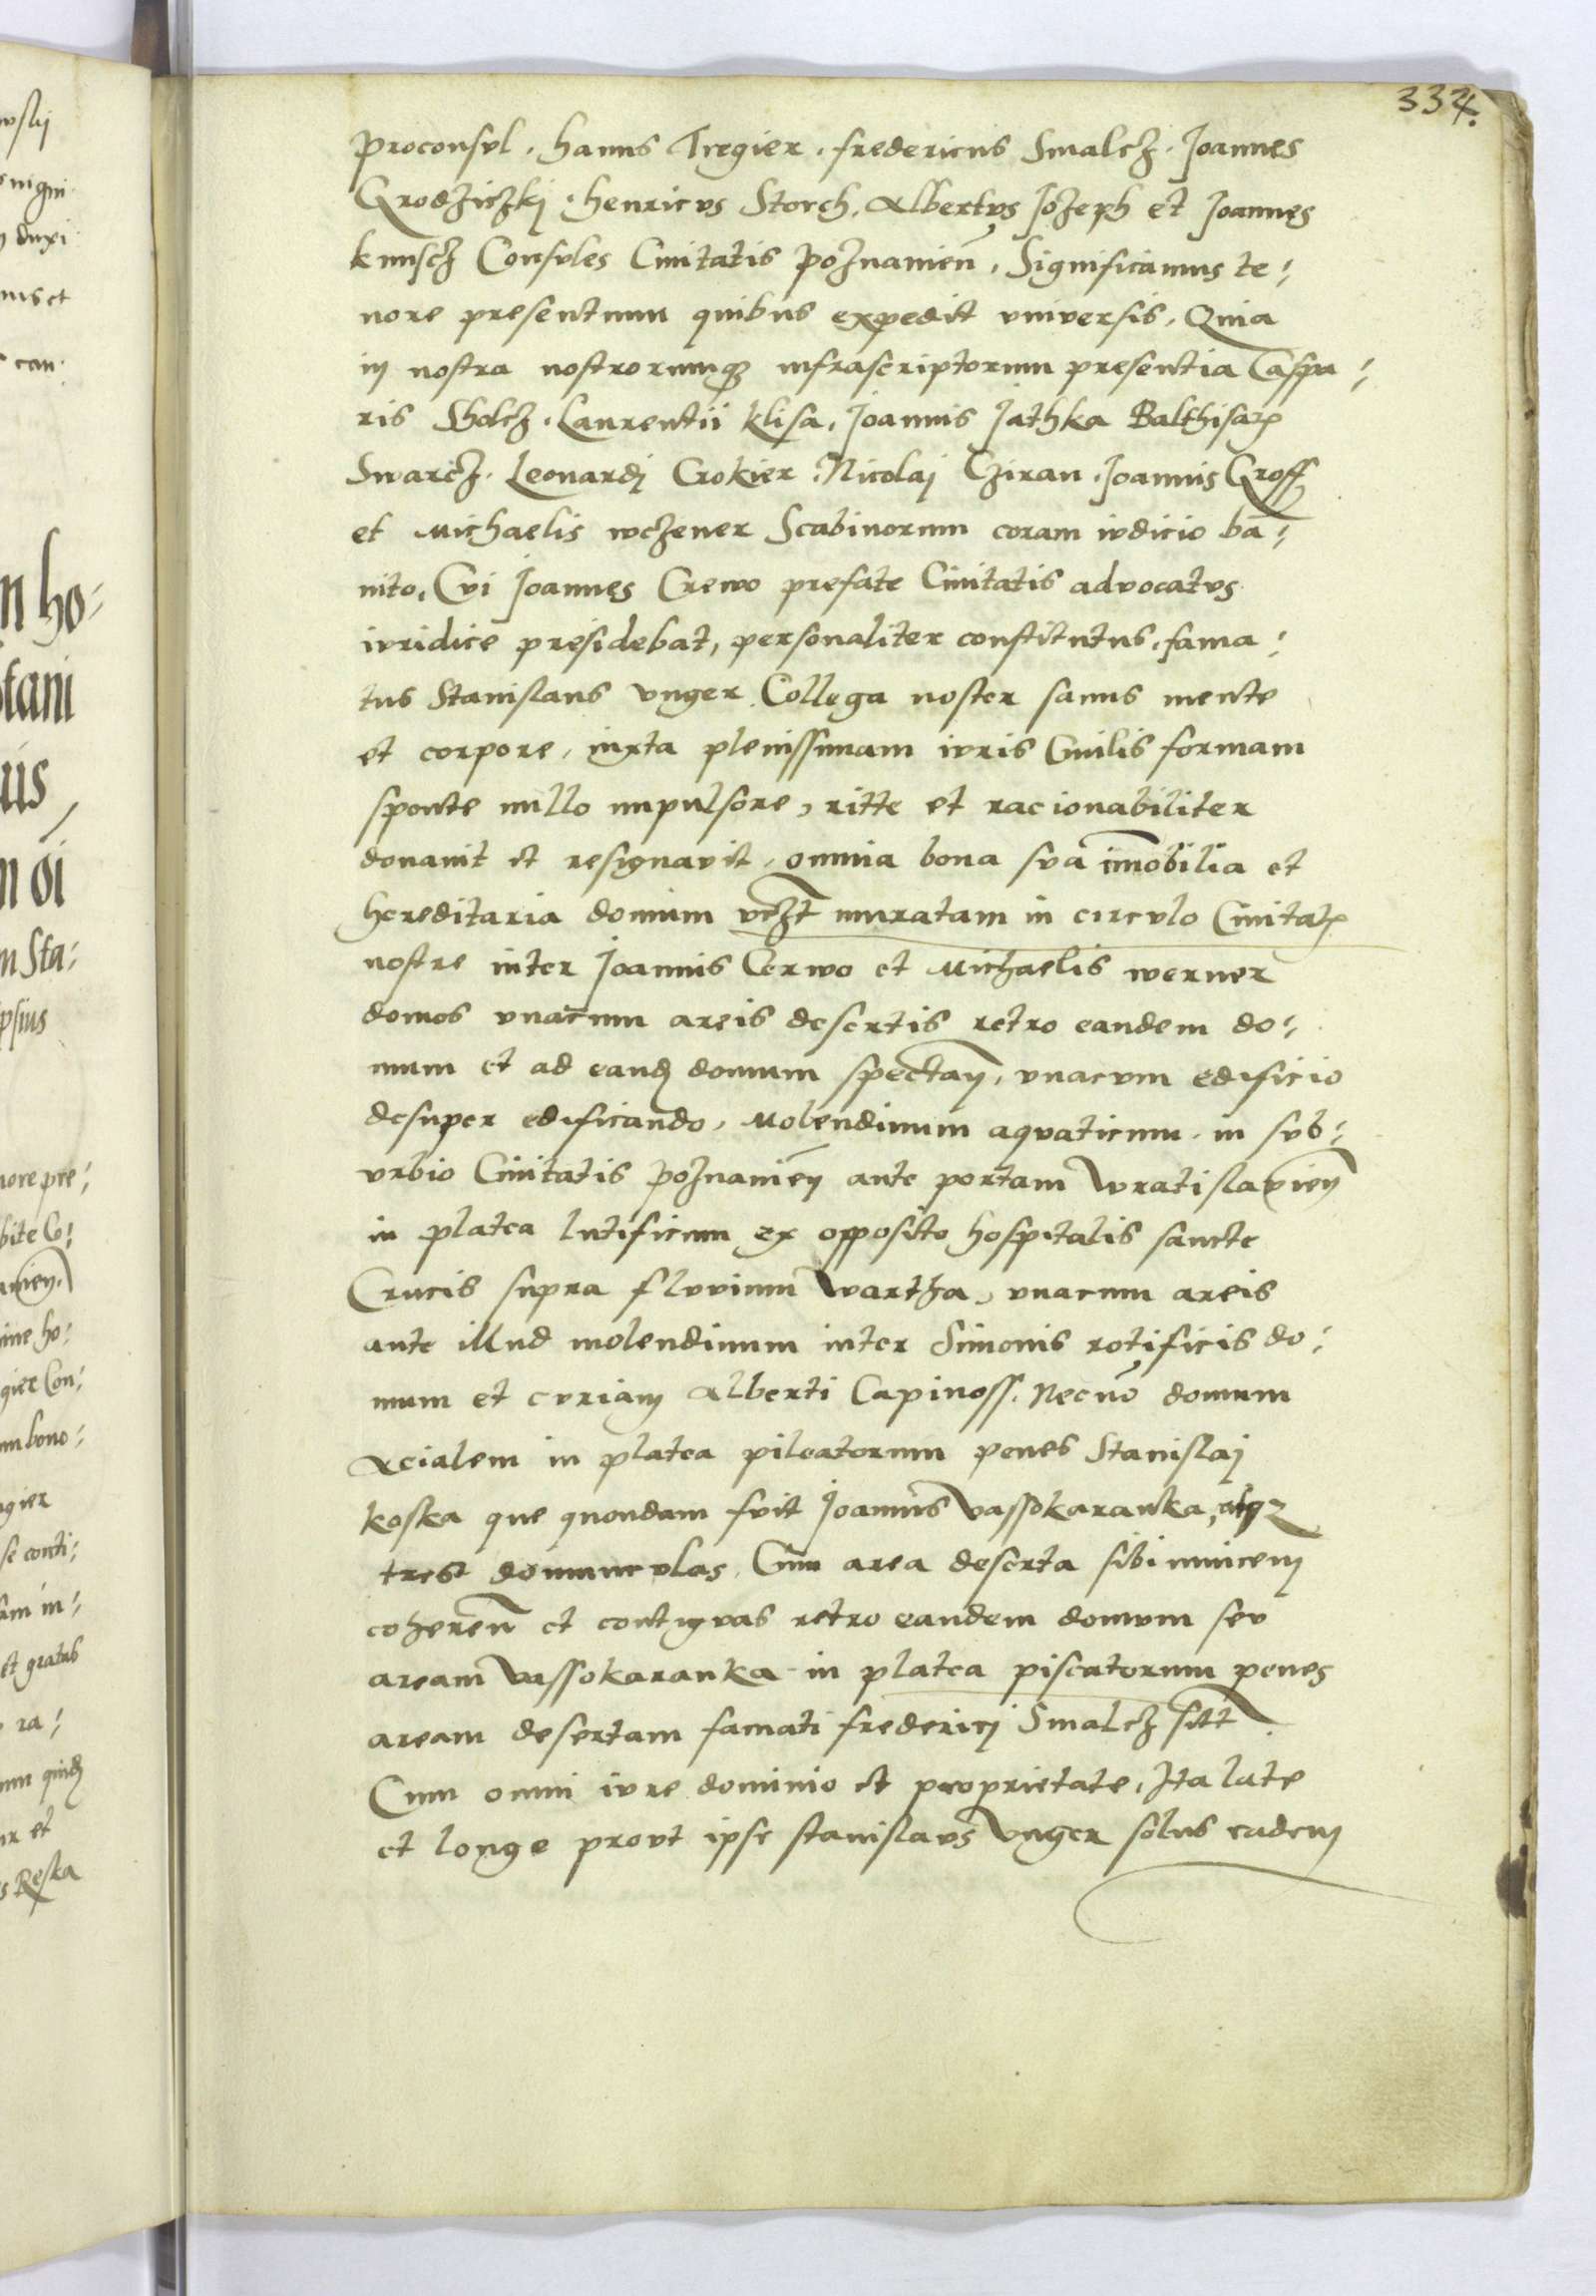 334.
proconsvl . hanns Tregier . fredericus Smalcz . Joannes
Grodziczkj . henricvs Storch . Albertvs Jozeph et Joannes
kunscz Consvles Ciuitatis poznanien̄ . Significamus te:
nore presentium quibus expedit vniversis . Quia
in nostra nostrorumq₃ infrascriptorum presentia Caspa:
ris Sholcz . Laurentii klisa . Joannis Jathka Balthisaꝝ
Swarcz . Leonardj Crokier . Nicolaj Cziran . Joannis Groff
et Michaelis wczener Scabinorum coram ivdicio ba:
nito, Cvi Joannes Crewo prefate Ciuitatis advocatvs
ivridice presidebat, personaliter constitutus . fama:
tus Stanislaus vnger Collega noster sanus mente
et corpore, iuxta plenissimam ivris Ciuilis formam
sponte nullo impulsore, ritte et racionabiliter
donauit et resignavit, omnia bona sva im̄obilia et
hereditaria domum vcz̄t muratam in circvlo Ciuitatꝭ
nostre inter Joannis Cerwo et Michaelis werner
domos vnacum areis desertis retro eandem do:
mum et ad eandꝫ domum spectan̄, vnacvm edificio
desuper edificando, Molendinum aqvaticum . in svb:
vrbio Ciuitatis poznanien̄ ante portam wratislavien̄
in platea lutificum ex opposito hospitalis sancte
Crucis supra flvvium wartha, vnacum areis
ante illud molendinum inter Simonis rotificis do:
mum et cvriam Alberti Capinoss . Necno᷑ domum
Acialem in platea pileatorum penes Stanislaj
koska que quondam fvit Joannis vassokaranka, atq₃
tres domuncvlas . Cum area deserta sibi inuicem
coheren̄ et contigvas retro eandem domvm sev
aream vassokaranka in platea piscatorum penes
aream desertam famati fredericj Smalcz sitt̄
Cum omni ivre dominio et proprietate . Ita late
et longe provt ipse stanislavs vnger solus eadem
n ho:
m Sta:
psius
nore pre:
bite Co:
nien.
ine ho:
gier Con:
m bono:
gier
se conti:
am in:
et gratus
ra:
um quidꝫ
r et
s Reska